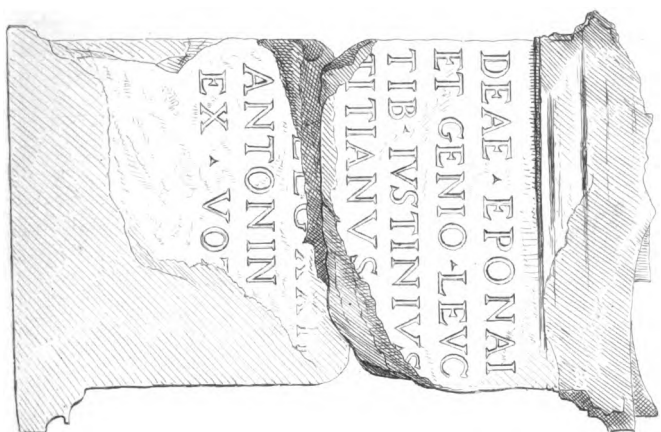 DEAE ▴ EPONAI
ET GENIO ▴ LEVC
TIB ▴ IVSTINIVS
TITIANVS
ANTONIN
EX ▴ VOT